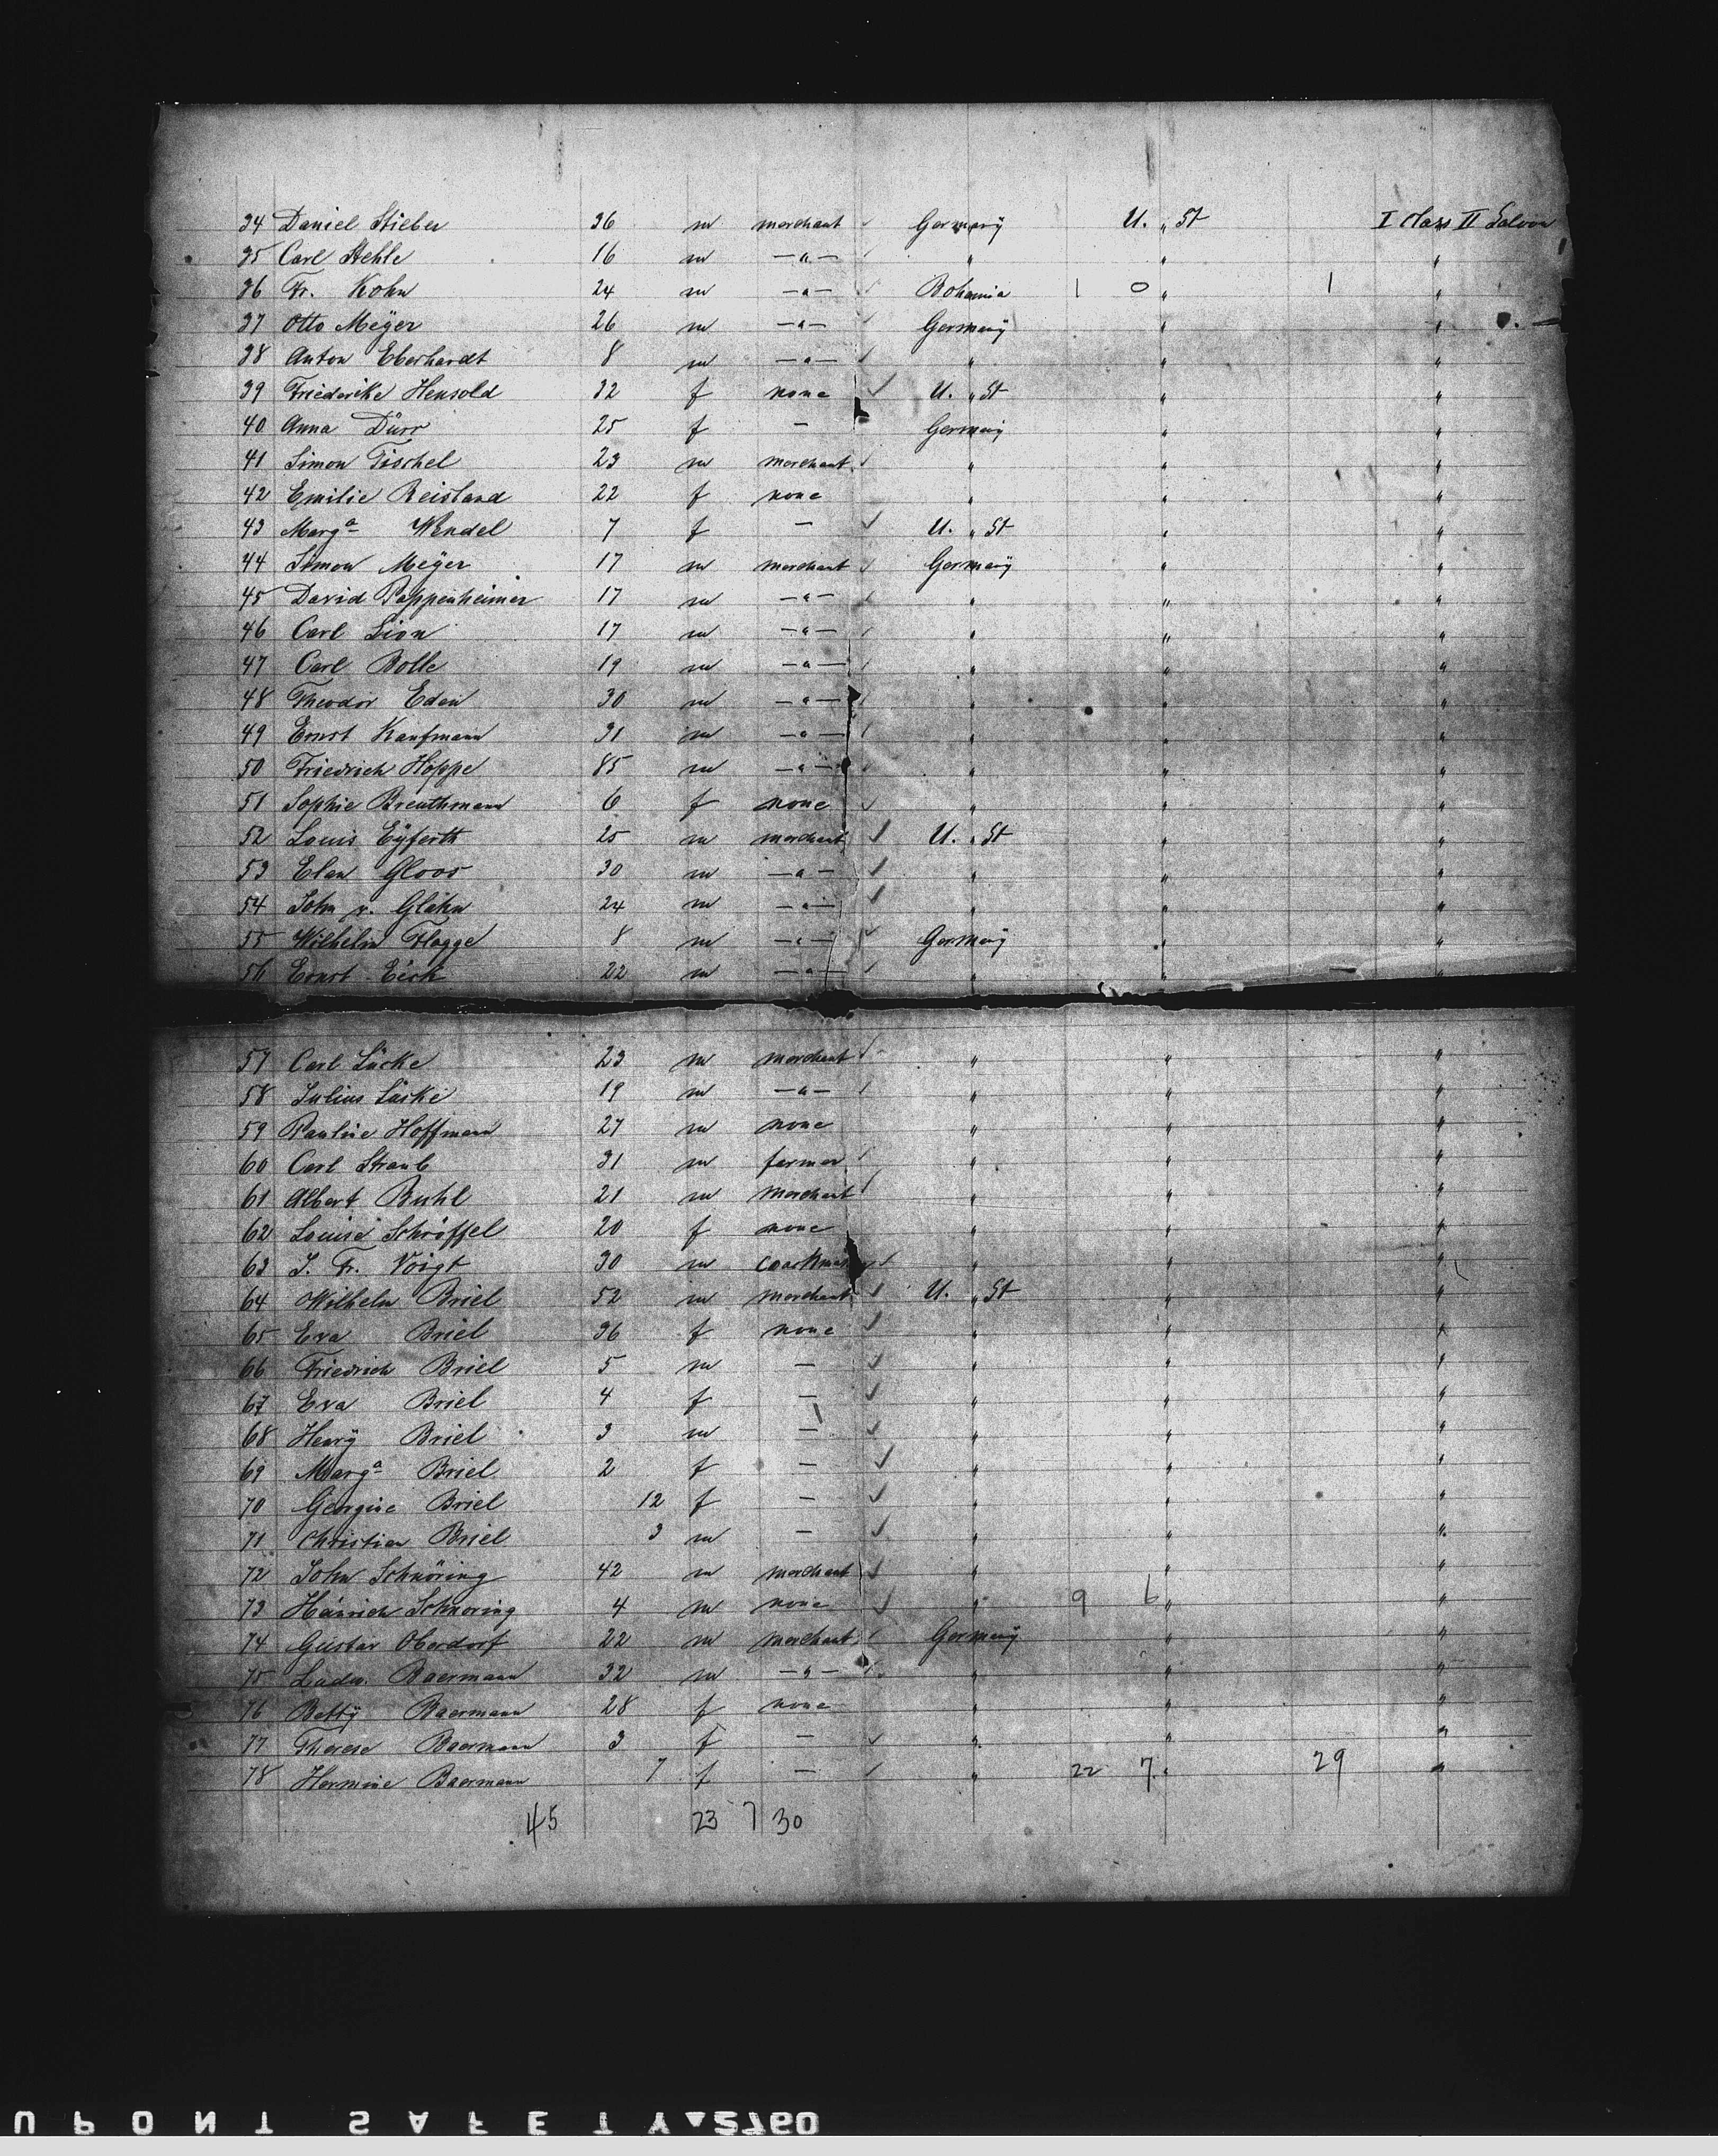 34 Daniel Stieber 36 m merchant Germany U. " St I class II Saloon
35 Carl Stehle 16 m —"— " " "
36 Fr. Kohn 24 m —"— Bohemia 1 0 " 1 "
37 Otto Meÿer 26 m —"— Germanÿ " "
38 Anton Eberhardt 8 m —"— " " "
39 Friederike Hensold 32 f none U. " St " "
40 Anna Dürr 25 f — Germany " "
41 Simon Tischel 23 m merchant " " "
42 Emilie Reisland 22 f none " " "
43 Marga Wendel 7 f — U. " St " "
44 Simon Meÿer 17 m merchant Germanÿ " "
45 David Pappenheimer 17 m —"— " " "
46 Carl Lion 17 m —"— " " "
47 Carl Bolle 19 m —"— " " "
48 Theodor Eden 30 m —"— " " "
49 Ernst Kaufmann 31 m —"— " " "
50 Friedrich Hoppe 85 m —"— " " "
51 Sophie Breuthmann 6 f none " " "
52 Louis Eÿferth 25 m merchant U. " St " "
53 Elan Gloor 30 m —"— " " "
54 John v. Glahn 24 m —"— " " "
55 Wilhelm Flagge 8 m —"— Germany " "
56 Ernst Eick 22 m —"— " " "
57 Carl Lücke 23 m merchant " " "
58 Julius 19 m —"— " " "
59 Pauline Hoffmann 27 m none " " "
60 Carl Straub 31 m farmer " " "
61 Albert Buhl 21 m merchant " " "
62 Louise Schröffel 20 f none " " "
63 J. Fr. Voigt 30 m " " "
64 Wilhelm Briel 52 m merchant U. " St " "
65 Eva Briel 36 f none " " "
66 Friedrich Briel 5 m — " " "
67 Eva Briel 4 f — " " "
68 Henrÿ Briel 3 m — " " "
69 Marga Briel 2 f — " " "
70 Georgine Briel 12 f — " " "
71 Christian Briel 3 m — " " "
72 John Schnöring 42 m merchant " " "
73 Heinrich Schnoring 4 m none " 9 6 " "
74 Gustav Oberdorf 22 m merchant Germany " "
75 Ludw. Baermann 32 m —"— " " "
76 Bettÿ Baermann 28 f none " " "
77 Therese Baermann 3 f — " " "
78 Hermine Baermann 7 f — " 22 7 " 29 "
45 23 7 30
UPONT SAFETY 2760